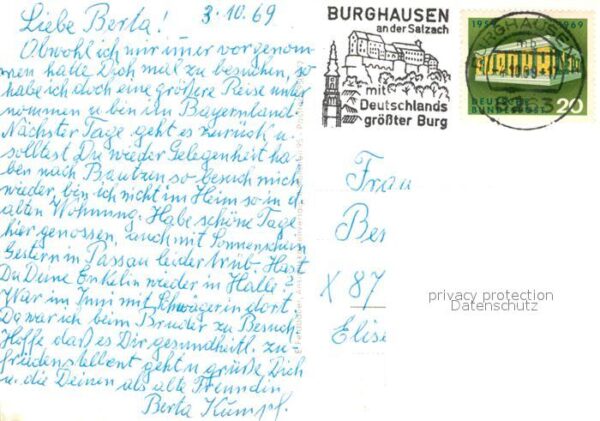 3.10.69
Liebe Berta!
Obwohl ich mir immer vorgenom-
men hatte Dich mal zu besuchen, so
habe ich doch eine größere Reise unter
nommen u bin in Bayernland.
Nächster Tage geht es zurück u.
solltest Du wieder Gelegenheit ha-
ben nach Bautzen so besuch mich
wieder, bin ich nicht im Heim so in d.
alten Wohnung. Habe schöne Tage
hier genossen, auch mit Sonnenschein
Gestern in Passau leider trüb. Hast
Du Deine Enkelin wieder in Halle?
War im Juni mit Schwägerin dort.
Da war ich beim Bruder zu Besuch.
Hoffe daß es Dir gesundheitl. zu-
friedenstellent geht u grüße Dich
u. die Deinen als alte Freundin
Berta Kumpf.
BURGHAUSEN
an der Salzach
mit
Deutschlands
größter Burg
1969
BURGHAUSEN
8263
DEUTSCHE
BUNDESPOST
20
Frau
Ber
X 87
Elise
privacy protection
Datenschutz